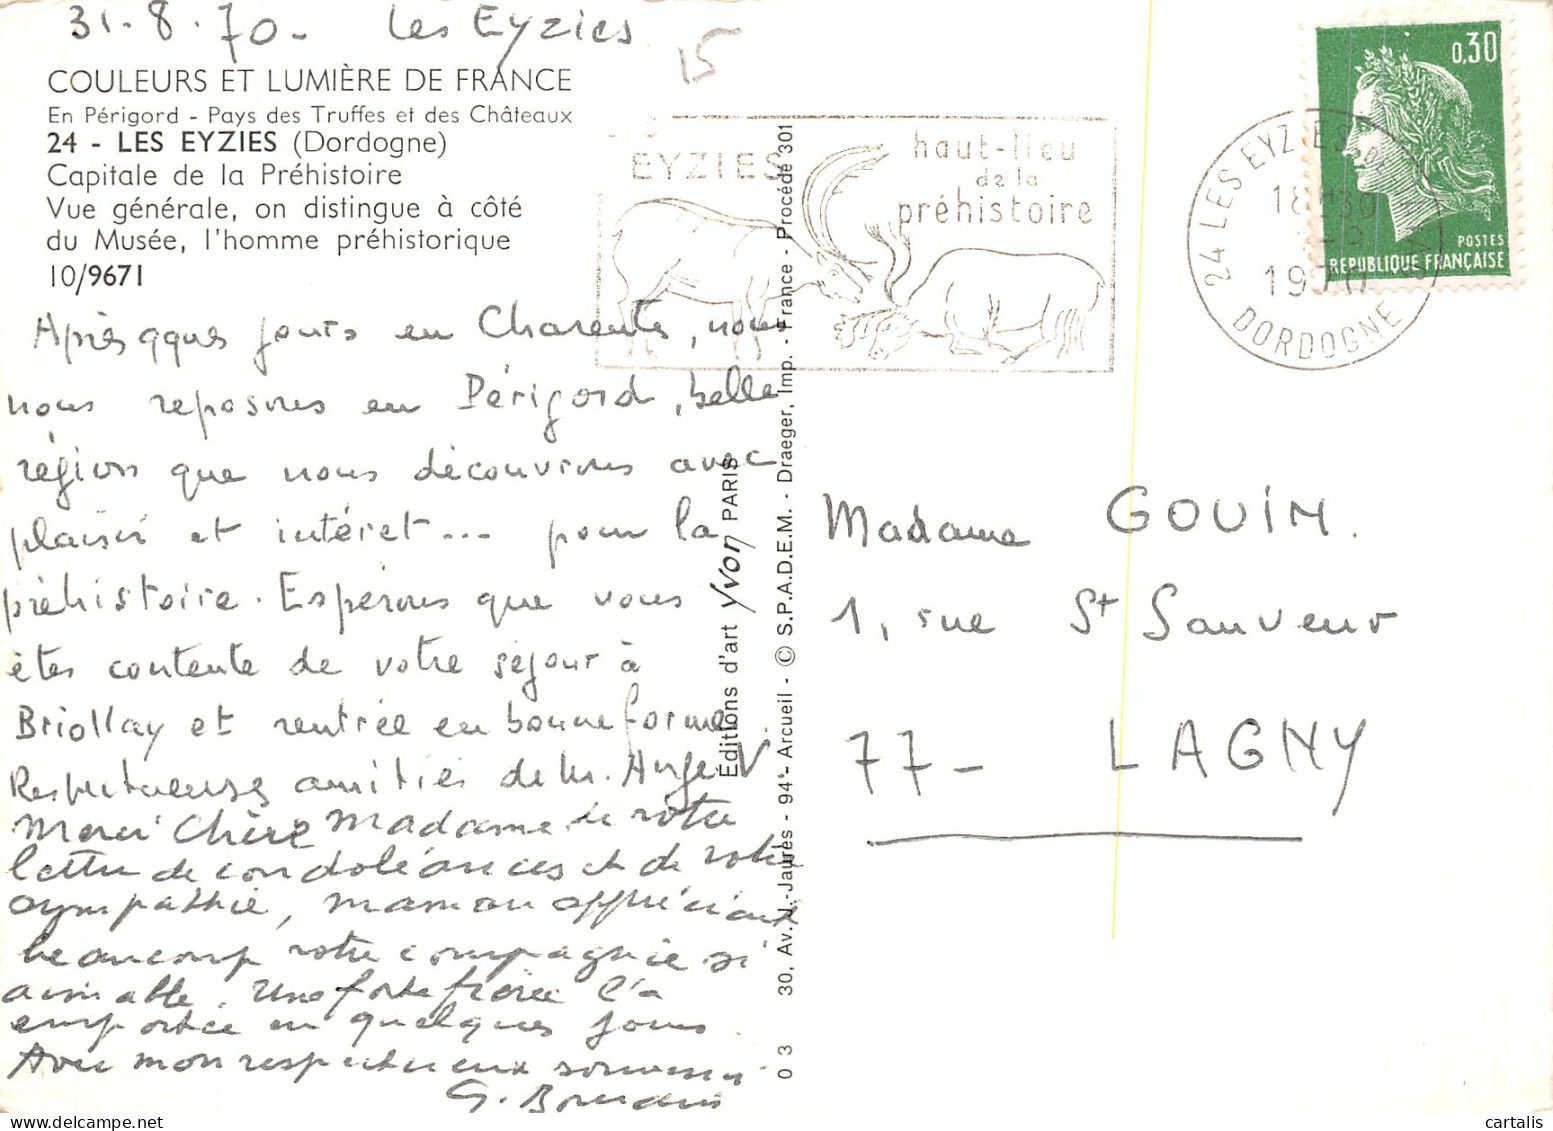 31-8-70- Les Eyzies
15
COULEURS ET LUMIÈRE DE FRANCE
En Périgord - Pays des Truffes et des Châteaux
24 - LES EYZIES (Dordogne)
Capitale de la Préhistoire
Vue générale, on distingue à côté
du Musée, l'homme préhistorique
10/9671
Après qques jours en Charente, nous
nous reposons en Périgord, belle
région que nous découvrons avec
plaisir et intéret... pour la
préhistoire. Espérons que vous
êtes contente de votre séjour à
Briollay et rentrée en bonne forme
Respectueuses amitiés de M. Ange V
Merci Chère Madame de votre
lettre de condoléances et de votre
sympathie, maman appréciait
beaucoup votre compagnie si
aimable. Une forte fièvre l'a
emportée en quelques jours.
Avec mon respectueux souvenir
EYZIES
haut-lieu
de la
préhistoire
0,30
POSTES
REPUBLIQUE FRANÇAISE
24 LES EYZIES
18 H30
1970
DORDOGNE
Éditions d'art Yvon PARIS
30, Av. J.-Jaurès - 94 - Arcueil - © S.P.A.D.E.M. - Draeger, Imp. - France - Procédé 301
0 3
Madame GOUIN.
1, rue St Sauveur
77- LAGNY
cartalis